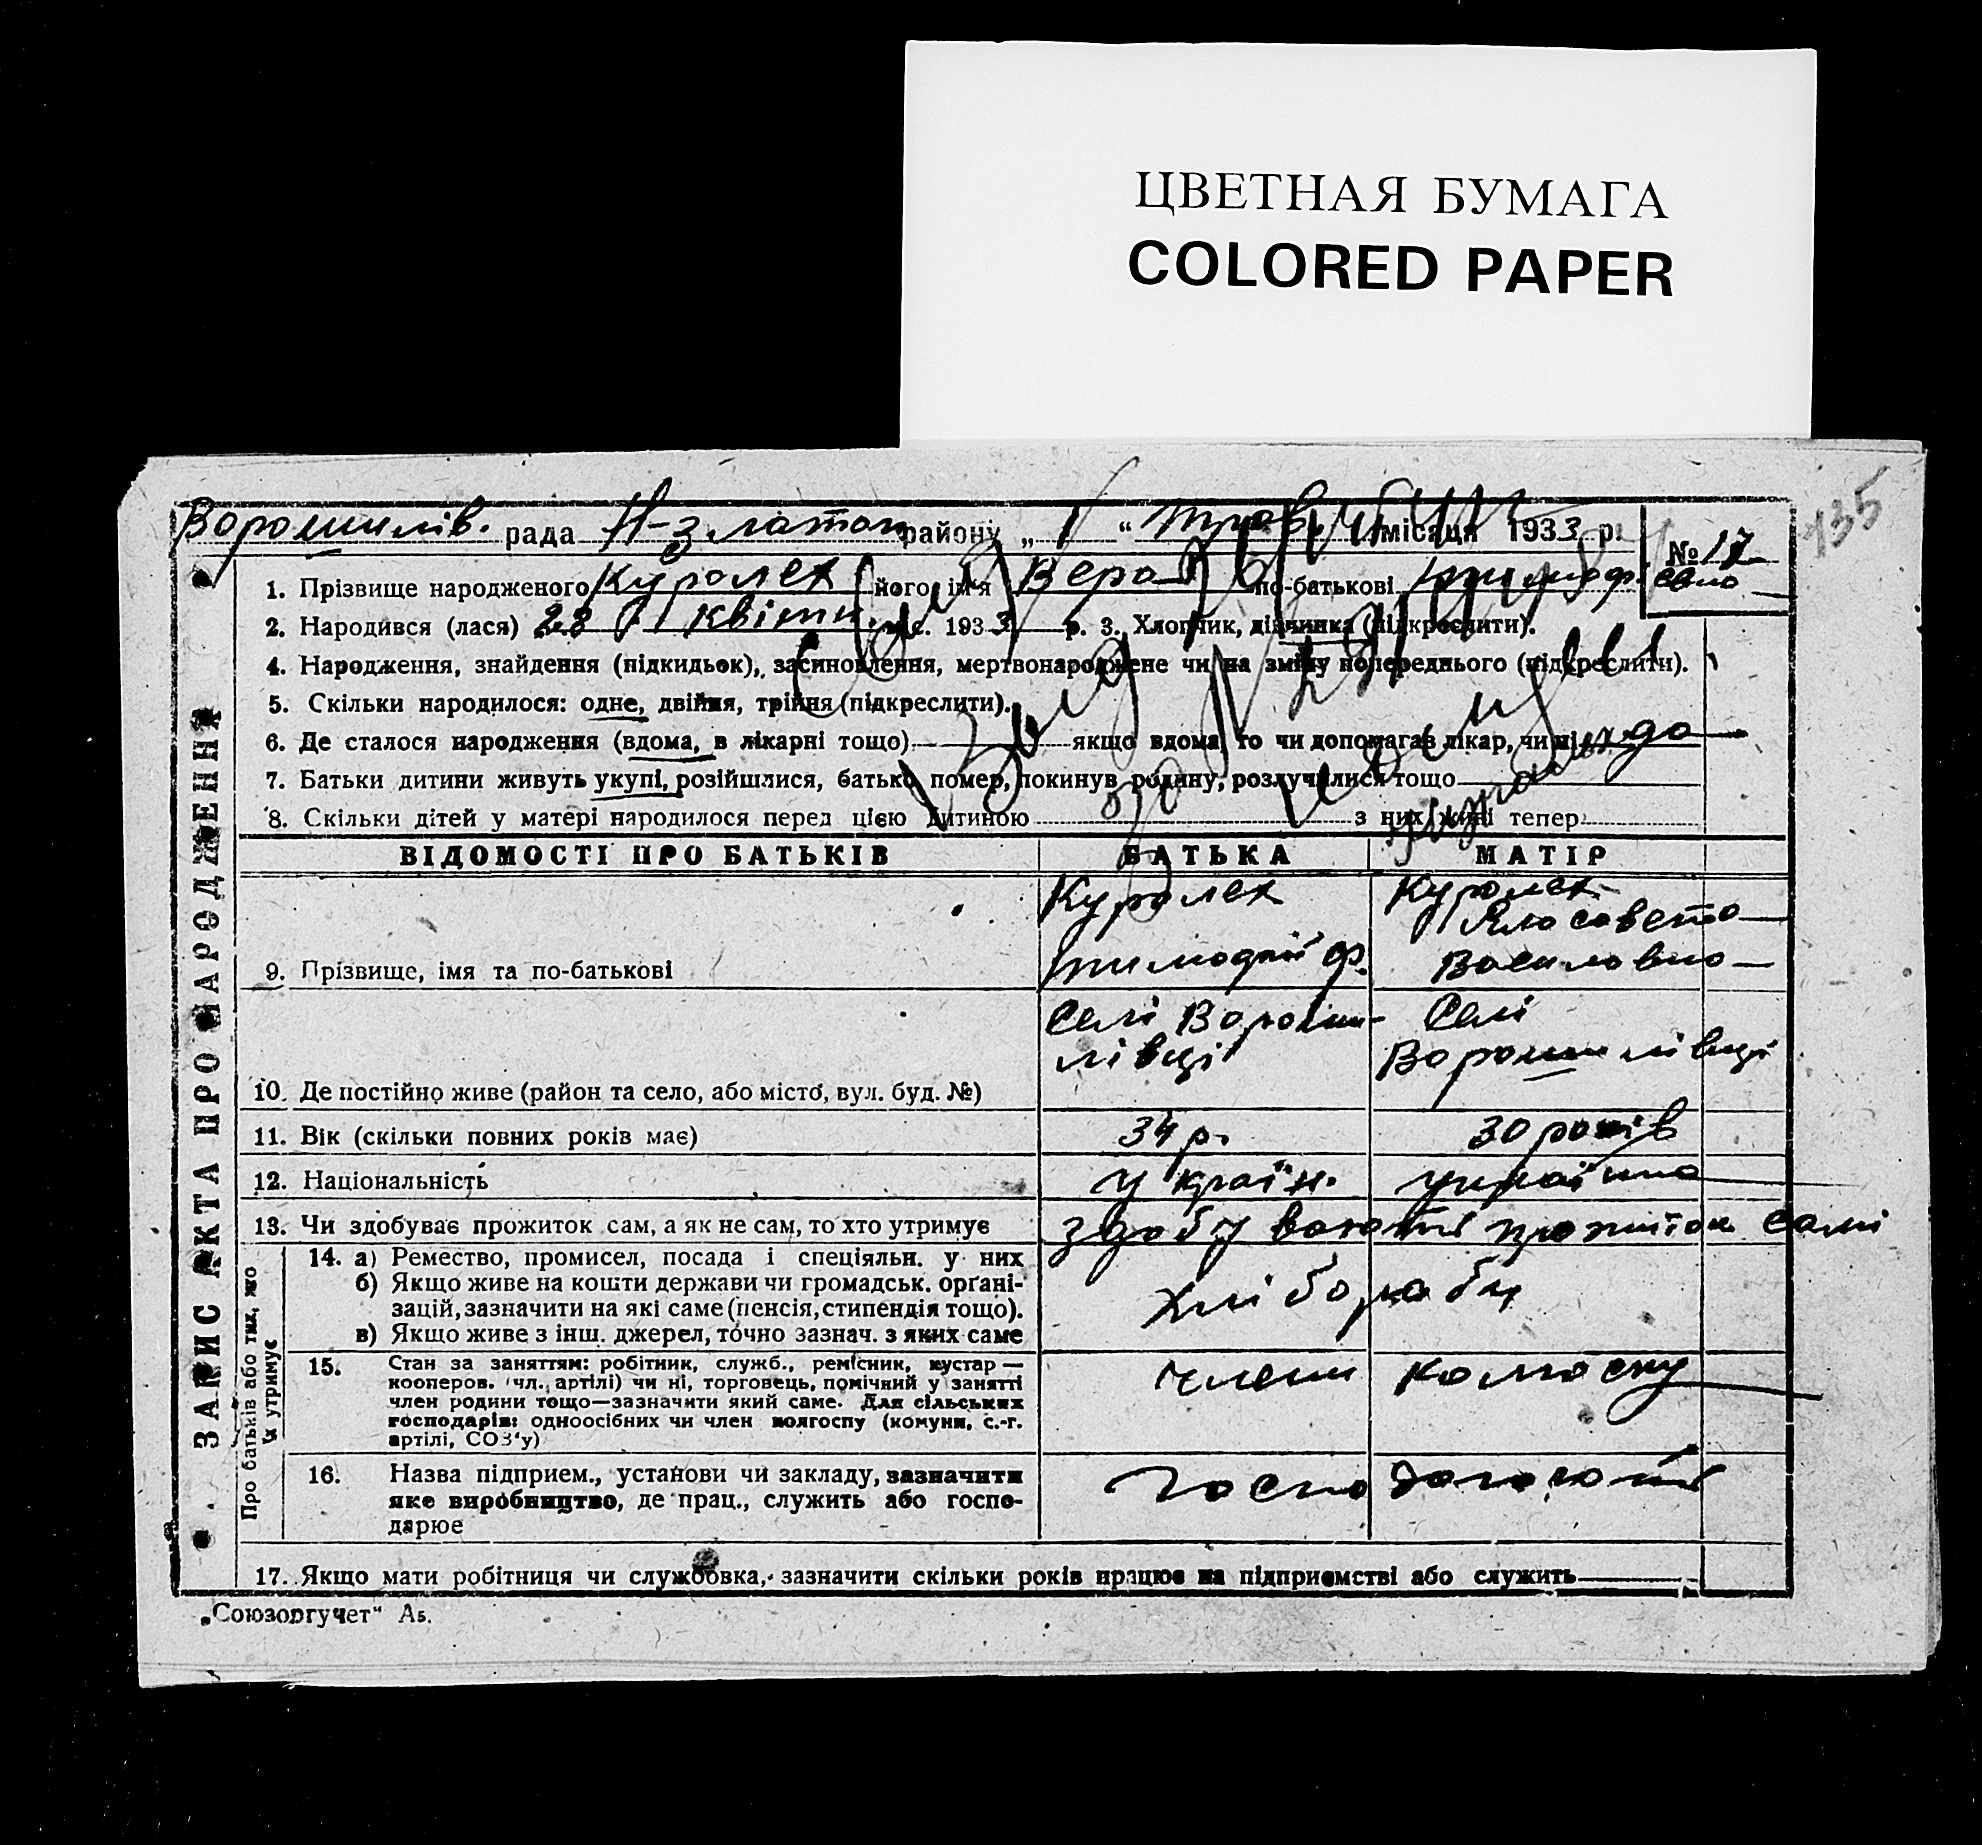 ЦВЕТНАЯ БУМАГА
COLORED PAPER
135
Ворошилів. рада Н-златоп району „ 1 “ Трав. місяця 1933 р. № 17
ЗАПИС АКТА ПРО НАРОДЖЕННЯ
1. Прізвище народженого Куролех його ім'я Вера по-батькові Тимоф. евна
2. Народився (лася) 28 квітн. м-с. 1933 р. 3. Хлопчик, дівчинка (підкреслити).
4. Народження, знайдення (підкидьок), засиновлення, мертвонароджене чи на зміну попереднього (підкреслити).
5. Скільки народилося: одне, двійня, трійня (підкреслити).
6. Де сталося народження (вдома, в лікарні тощо) якщо вдома, то чи допомагав лікар, чи ні
7. Батьки дитини живуть укупі, розійшлися, батько помер, покинув родину, розлучилися тощо
8. Скільки дітей у матері народилося перед цією дитиною з них живі тепер
ВІДОМОСТІ ПРО БАТЬКІВ БАТЬКА МАТІР
Куролех Куролех
Тимофій Ф. Василовна
9. Прізвище, імя та по-батькові
Селі Вороши- Селі
лівці Ворошилівці
10. Де постійно живе (район та село, або місто, вул. буд. №)
11. Вік (скільки повних років має) 34 р. 30 років
12. Національність україн. українка
13. Чи здобуває прожиток сам, а як не сам, то хто утримує здобувають прожиток самі
Про батьків або тих, хто їх утримує
14. а) Ремество, промисел, посада і спеціяльн. у них
б) Якщо живе на кошти держави чи громадськ. орґані-
зацій, зазначити на які саме (пенсія, стипендія тощо).
в) Якщо живе з інш. джерел, точно зазнач. з яких саме
хлібороби
15. Стан за заняттям: робітник, служб., ремісник, кустар —
кооперов. (чл. артілі) чи ні, торговець, помічний у занятті
член родини тощо—зазначити який саме. Для сільських
господарів: одноосібних чи член колгоспу (комуни, с.-г.
артілі, СОЗ'у)
члени колгоспу
16. Назва підприєм., установи чи закладу, зазначити
яке виробництво, де прац., служить або госпо-
дарює
17. Якщо мати робітниця чи службовка, зазначити скільки років працює на підприємстві або служить
„Союзоргучет“ А5.